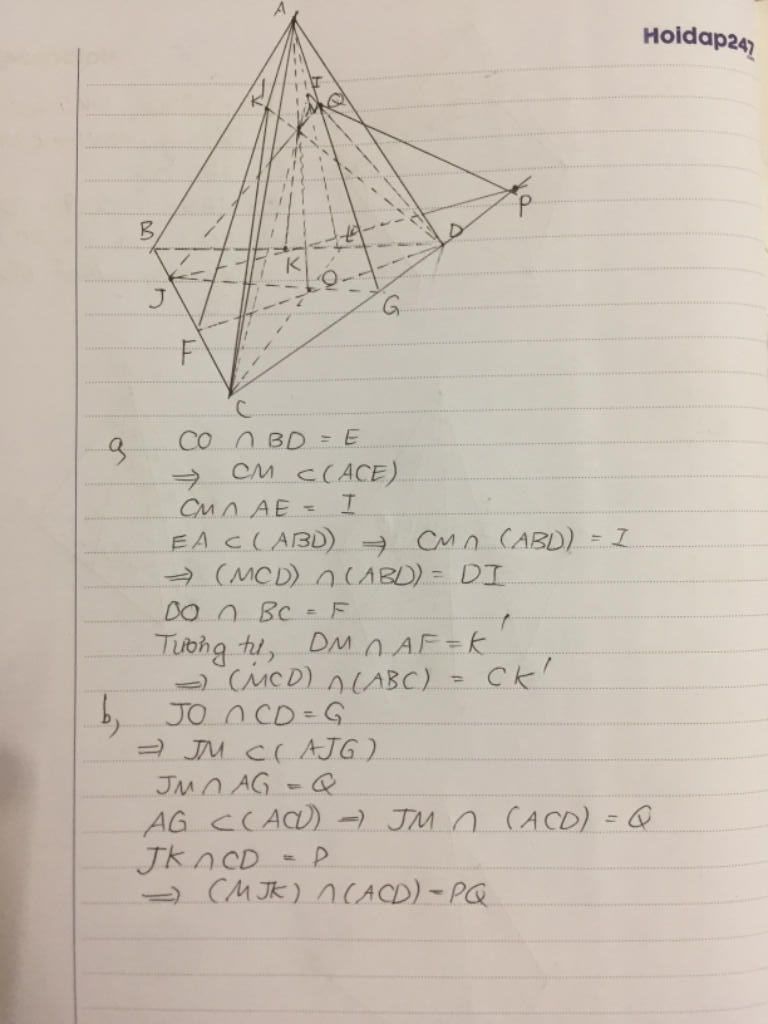 Hoidap247
A
I
K'
Q
P
B
E
D
K
O
J
G
F
C
a, CO ∩ BD = E
⇒ CM ⊂ (ACE)
CM ∩ AE = I
EA ⊂ (ABD) ⇒ CM ∩ (ABD) = I
⇒ (MCD) ∩ (ABD) = DI
DO ∩ BC = F
Tương tự, DM ∩ AF = K'
⇒ (MCD) ∩ (ABC) = CK'
b, JO ∩ CD = G
⇒ JM ⊂ (AJG)
JM ∩ AG = Q
AG ⊂ (ACD) ⇒ JM ∩ (ACD) = Q
JK ∩ CD = P
⇒ (MJK) ∩ (ACD) = PQ